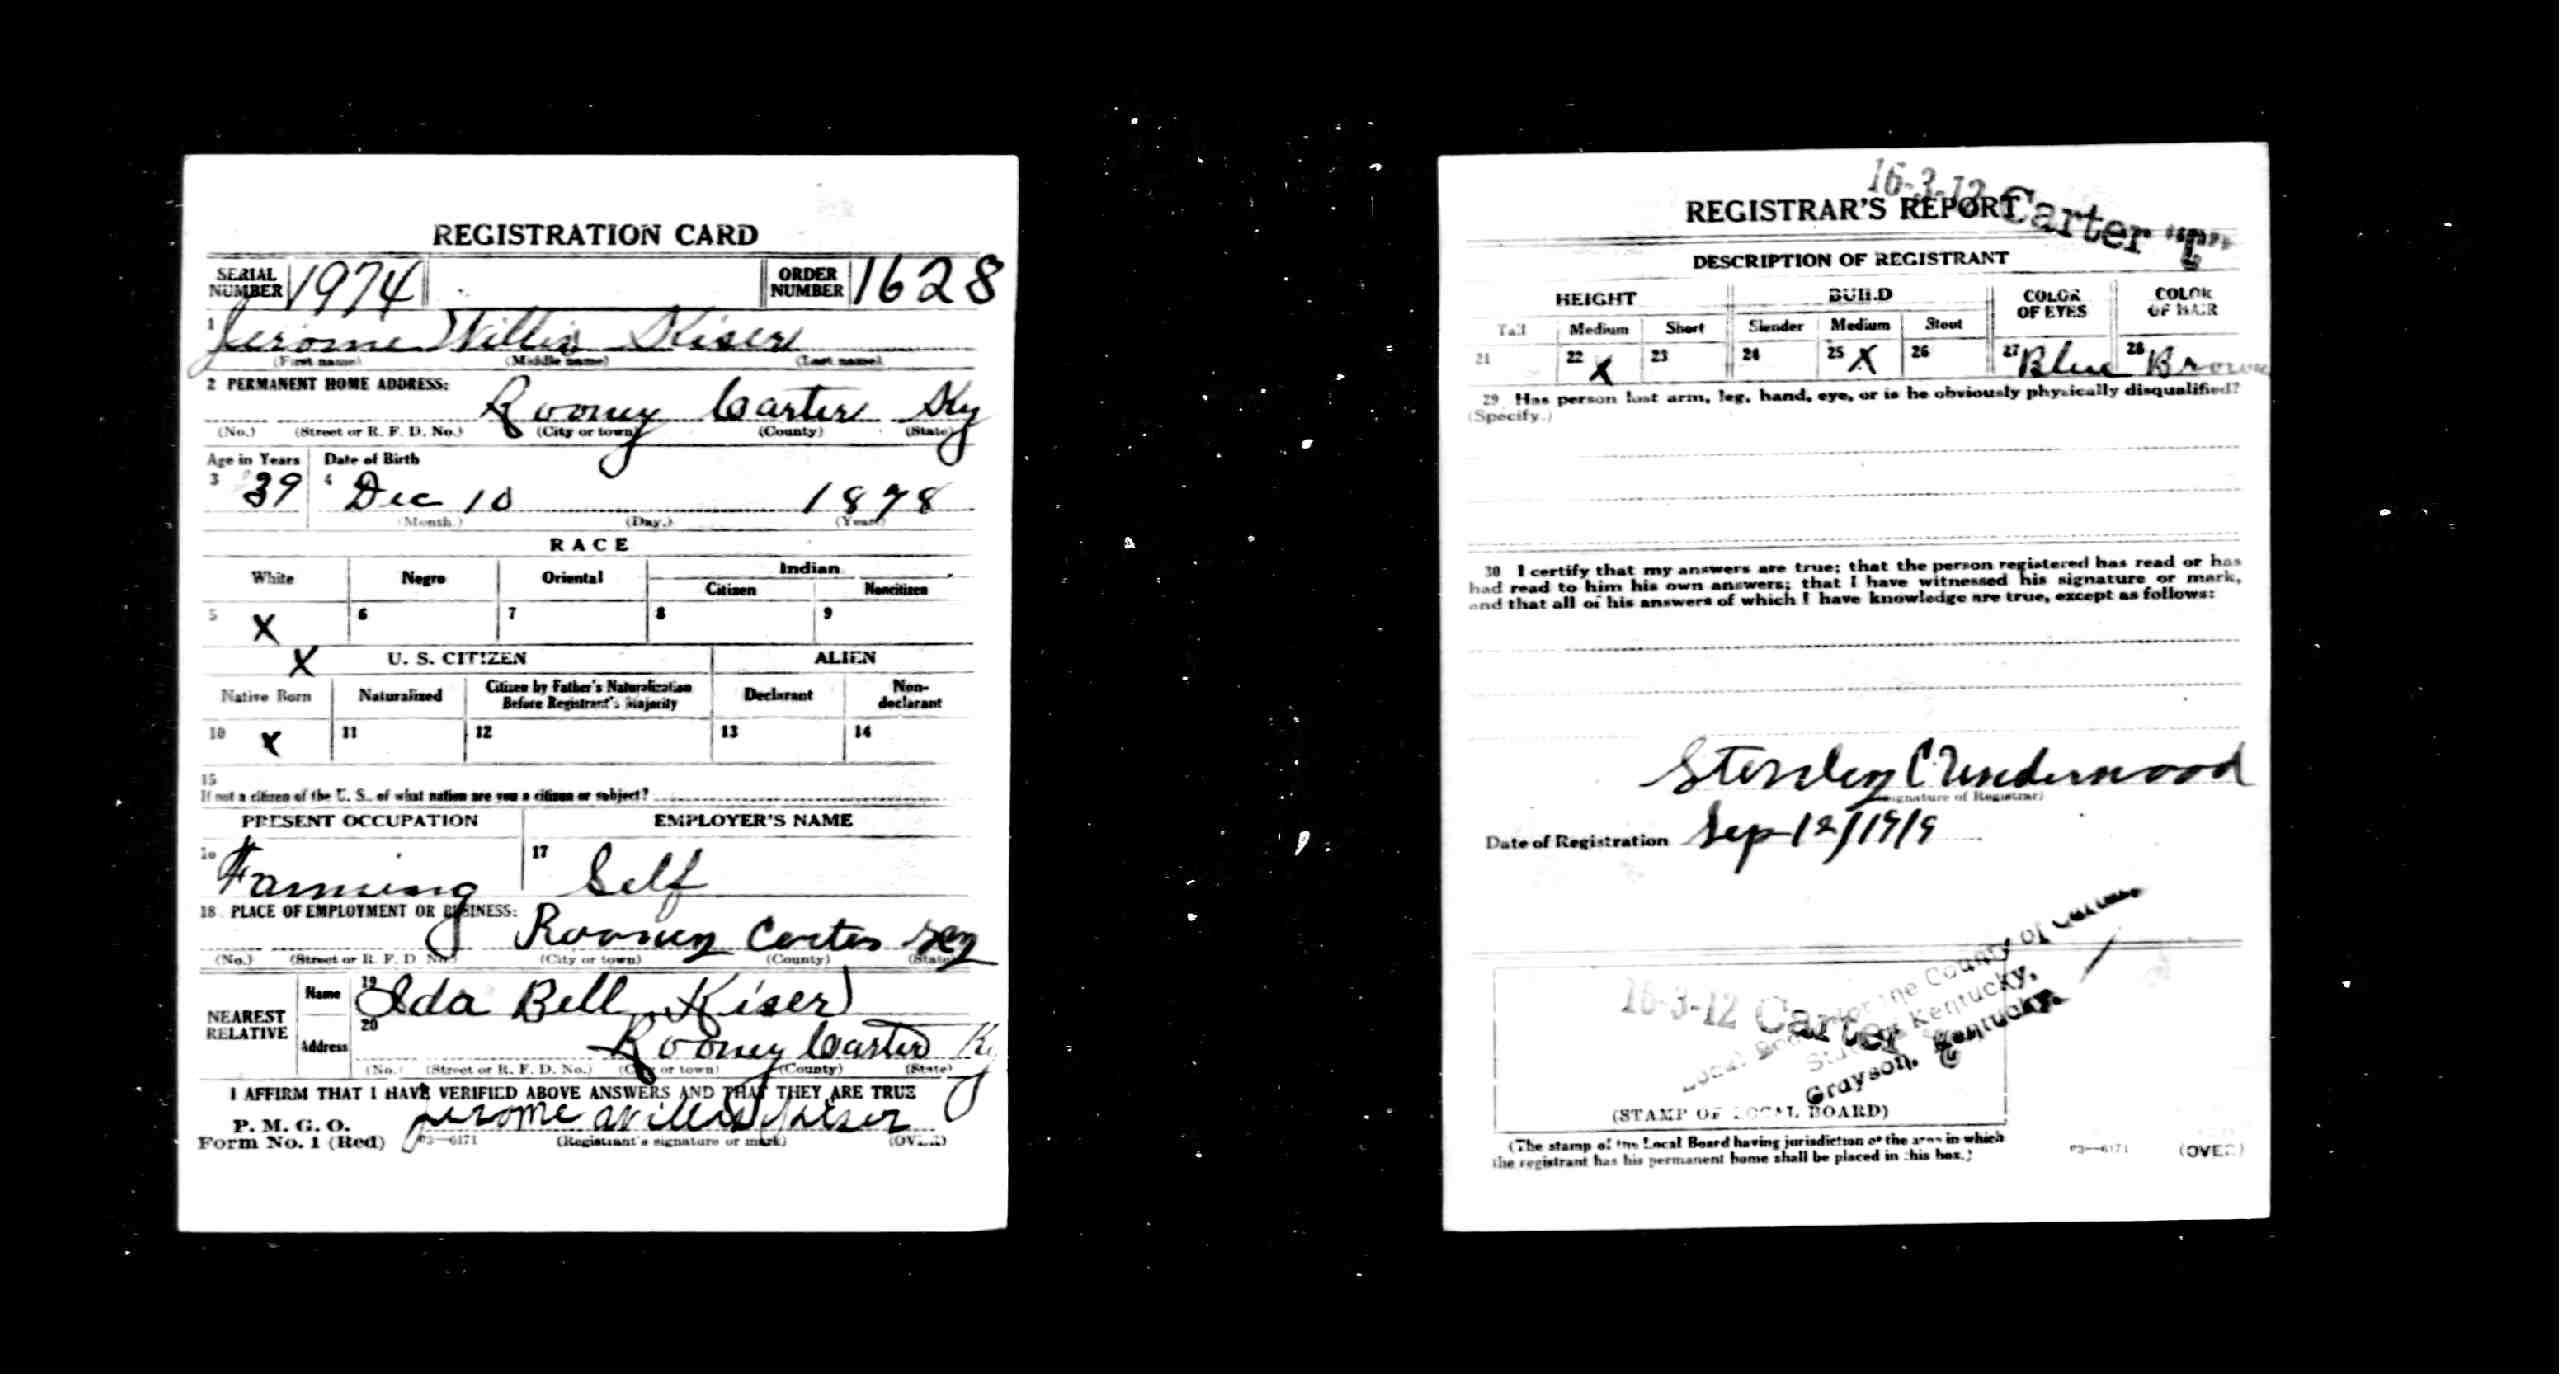 REGISTRATION CARD
SERIAL NUMBER 1974 ORDER NUMBER 1628
1 Jerome Willis Kiser
(First name) (Middle name) (Last name)
2 PERMANENT HOME ADDRESS:
Rooney Carter Ky
(No.) (Street or R. F. D. No.) (City or town) (County) (State)
Age in Years Date of Birth
3 39 4 Dec 10 1878
(Month.) (Day.) (Year)
RACE
White Negro Oriental Indian
Citizen Noncitizen
5 X 6 7 8 9
X U. S. CITIZEN ALIEN
Native Born Naturalized Citizen by Father's Naturalization Before Registrant's Majority Declarant Non-declarant
10 X 11 12 13 14
15
If not a citizen of the U. S., of what nation are you a citizen or subject?
PRESENT OCCUPATION EMPLOYER'S NAME
16 Farming 17 Self
18 PLACE OF EMPLOYMENT OR BUSINESS:
Rooney Carter Ky
(No.) (Street or R. F. D. No.) (City or town) (County) (State)
NEAREST RELATIVE
Name 19 Ida Bell Kiser
Address 20 Rooney Carter Ky
(No.) (Street or R. F. D. No.) (City or town) (County) (State)
I AFFIRM THAT I HAVE VERIFIED ABOVE ANSWERS AND THAT THEY ARE TRUE
P. M. G. O.
Form No. 1 (Red) 03—6171 Jerome Willis Kiser
(Registrant's signature or mark) (OVER)
16-3-12 Carter "C"
REGISTRAR'S REPORT
DESCRIPTION OF REGISTRANT
HEIGHT BUILD COLOR OF EYES COLOR OF HAIR
Tall Medium Short Slender Medium Stout
21 22 X 23 24 25 X 26 27 Blue 28 Brown
29 Has person lost arm, leg, hand, eye, or is he obviously physically disqualified?
(Specify.)
30 I certify that my answers are true; that the person registered has read or has
had read to him his own answers; that I have witnessed his signature or mark,
and that all of his answers of which I have knowledge are true, except as follows:
Stanley C Underwood
(Signature of Registrar)
Date of Registration Sep 12/1919
16-3-12 Carter "C"
Local Board for the County of Carter
State of Kentucky,
Grayson, Kentucky.
(STAMP OF LOCAL BOARD)
(The stamp of the Local Board having jurisdiction of the area in which
the registrant has his permanent home shall be placed in this box.)
03—6171 (OVER)